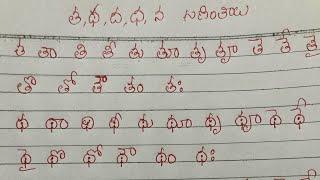 త,థ,ద,ధ,న గుణింతము
త తా తి తీ తు తూ తృ తౄ తె తే తై
తొ తో తౌ తం తః
థ థా థి థీ థు థూ థృ థౄ థె థే
థై థొ థో థౌ థం థః